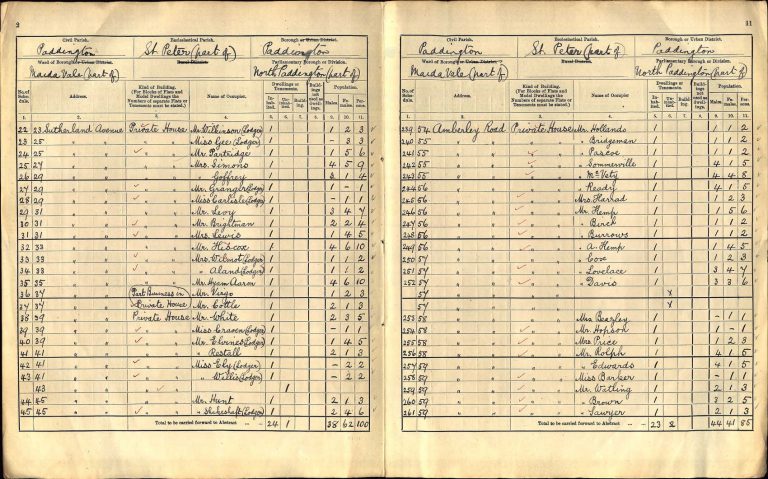 2
Civil Parish. Ecclesiastical Parish. Borough or Urban District.
Paddington St. Peter (part of) Paddington
Ward of Borough or Urban District. Rural District. Parliamentary Borough or Division.
Maida Vale (part of) North Paddington (part of)
No. of Schedule. Address. Kind of Building. (For Blocks of Flats and Model Dwellings the Numbers of separate Flats or Tenements must be stated.) Name of Occupier. Dwellings or Tenements. Buildings not used as dwellings. Population.
Inhabited. Uninhabited. Building. Males. Females. Persons.
1. 2. 3. 4. 5. 6. 7. 8. 9. 10. 11.
22 23 Sutherland Avenue Private House Mr Wilkinson (Lodger) 1 1 2 3
23 25 " " " " Miss Gee (Lodger) 1 - 3 3
24 25 " " " " Mr Partridge 1 1 5 6
25 27 " " " " Mrs Simons 1 4 5 9
26 29 " " " " " Goffrey 1 3 1 4
27 29 " " " " Mr Granger (Lodger) 1 1 - 1
28 29 " " " " Miss Carlisle (Lodger) 1 - 1 1
29 31 " " " " Mr Levy 1 3 4 7
30 31 " " " " Mr Brightman 1 2 2 4
31 31 " " " " Mrs Lewis 1 1 4 5
32 33 " " " " Mr Hiscox 1 4 6 10
33 33 " " " " Mrs Wilmot (Lodger) 1 1 1 2
34 33 " " " " " Aland (Lodger) 1 1 1 2
35 35 " " " " Mr Hyam Aaron 1 4 6 10
36 37 " " Part Business in Mr Virgo 1 1 2 3
37 37 " " Private House Mr Cottle 1 2 1 3
38 39 " " Private House Mr White 1 2 3 5
39 39 " " " " Miss Craven (Lodger) 1 - 1 1
40 39 " " " " Mr Elvines (Lodger) 1 1 4 5
41 41 " " " " " Restall 1 2 1 3
42 41 " " " " Miss Ely (Lodger) 1 - 2 2
43 41 " " " " " Willis (Lodger) 1 - 2 2
43 " " " " 1
44 45 " " " " Mr Hunt 1 2 1 3
45 45 " " " " " Shakeshaft (Lodger) 1 2 4 6
Total to be carried forward to Abstract 24 1 38 62 100
11
Civil Parish. Ecclesiastical Parish. Borough or Urban District.
Paddington St. Peter (part of) Paddington
Ward of Borough or Urban District. Rural District. Parliamentary Borough or Division.
Maida Vale (part of) North Paddington (part of)
No. of Schedule. Address. Kind of Building. (For Blocks of Flats and Model Dwellings the Numbers of separate Flats or Tenements must be stated.) Name of Occupier. Dwellings or Tenements. Buildings not used as dwellings. Population.
Inhabited. Uninhabited. Building. Males. Females. Persons.
1. 2. 3. 4. 5. 6. 7. 8. 9. 10. 11.
239 54 Amberley Road Private House Mr Hollands 1 1 1 2
240 55 " " " " " Bridgeman 1 1 1 2
241 55 " " " " " Pascoe 1 1 1 2
242 55 " " " " " Sommerville 1 4 1 5
243 55 " " " " " McVety 1 4 4 8
244 56 " " " " " Ready 1 4 1 5
245 56 " " " " Mrs Harrad 1 1 2 3
246 56 " " " " Mr Hemp 1 1 5 6
247 56 " " " " " Birch 1 1 1 2
248 56 " " " " " Burrows 1 1 1 2
249 56 " " " " " A. Hemp 1 1 4 5
250 57 " " " " " Cox 1 1 2 3
251 57 " " " " " Lovelace 1 3 4 7
252 57 " " " " " Davis 1 3 3 6
57 " " " " x
57 " " " " x
253 58 " " " " Mrs Beazley 1 - 1 1
254 58 " " " " Mr Hopson 1 1 - 1
255 58 " " " " Mrs Price 1 1 2 3
256 58 " " " " Mr Rolph 1 4 1 5
257 59 " " " " " Edwards 1 4 1 5
258 59 " " " " Miss Barker 1 - 1 1
259 59 " " " " Mr Watling 1 2 1 3
260 59 " " " " " Brown 1 3 2 5
261 59 " " " " " Sawyer 1 2 1 3
Total to be carried forward to Abstract 23 2 44 41 85